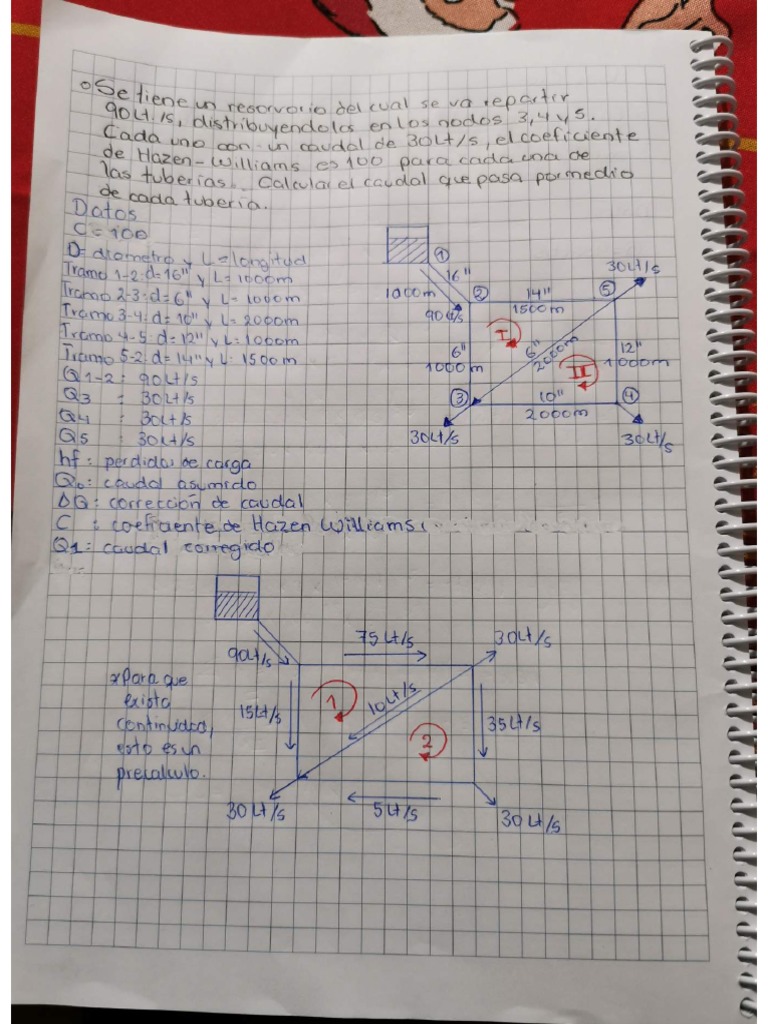 ○ Se tiene un reservorio del cual se va repartir
90Lt./s, distribuyendolos en los nodos 3,4 y 5.
Cada uno con un caudal de 30Lt/s, el coeficiente
de Hazen-Williams es 100 para cada una de
las tuberias. Calcular el caudal que pasa por medio
de cada tuberia.
Datos
C = 100
D= diametro y L= longitud
Tramo 1-2: d=16" y L= 1000m
Tramo 2-3: d=6" y L= 1000m
Tramo 3-4: d=10" y L= 2000m
Tramo 4-5: d=12" y L= 1000m
Tramo 5-2: d=14" y L: 1500m
Q1-2 : 90Lt/s
Q3 : 30Lt/s
Q4 : 30Lt/s
Q5 : 30Lt/s
hf : perdidas de carga
Qo : caudal asumido
ΔQ : corrección de caudal
C : coeficiente de Hazen Williams
Q1 : caudal corregido
①
16"
1000m
②
14"
1500m
⑤
30Lt/s
90Lt/s
I
6"
1000m
6"
2000m
12"
1000m
II
③
10"
2000m
④
30Lt/s
30Lt/s
90Lt/s
75Lt/s
30Lt/s
*Para que
exista
continuidad,
esto es un
precalculo.
15Lt/s
1
10Lt/s
2
35Lt/s
30Lt/s
5Lt/s
30Lt/s